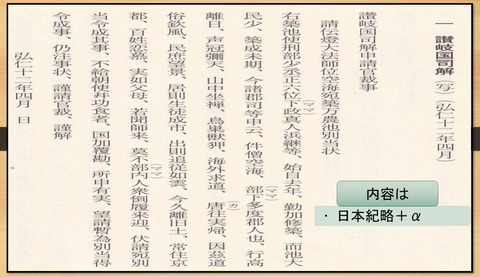 一 讃岐国司解（写）（弘仁十二年四月）
讃岐国司解申請官裁事
請伝燈大法師位空海宛築万農池別当状
右築池使刑部少丞正六位下政真人浜継等、始自去年、勤加修築、而池大
（ママ）
民少、築成未期、今諸郡司等申云、件僧空海、部下多度郡人也、行高
（ママ）
離日、声冠彌天、山中坐禅、鳥巣獣狎、海外求道、唐往実帰、因茲道
（カ）
俗欽風、民庶望景、居則生徒成市、出則追従如雲、今久離旧土、常住京
都、百姓恋慕、実如父母、若聞師来、莫不部内人衆倒履来迎、伏請宛別
（ママ）
当令成其事、不給朝使并功食者、国加覆勘、所申有実、望請暫為別当得
令成事、仍注事状、謹請官裁、謹解
弘仁十二年四月 日
内容は
・日本紀略＋α